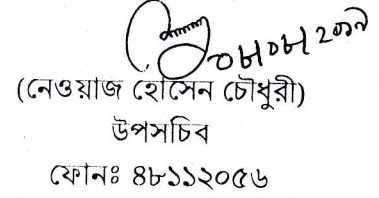 ০৮/০৮/২০১৭
(নেওয়াজ হোসেন চৌধুরী)
উপসচিব
ফোনঃ ৪৮১১২০৫৬